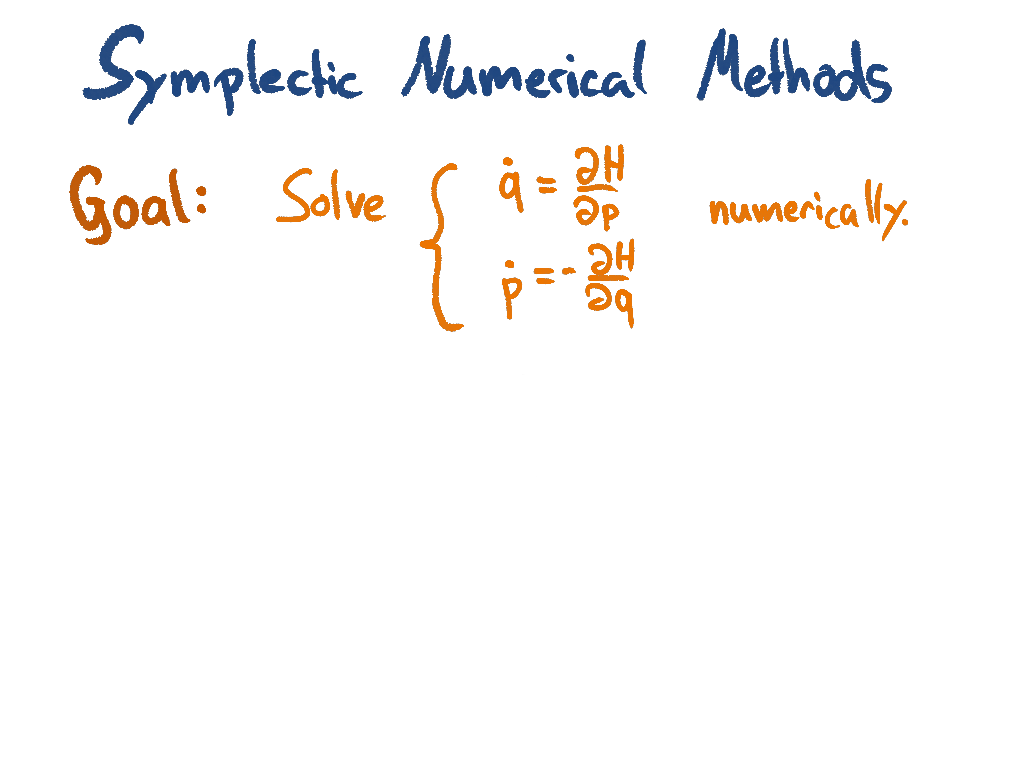 Symplectic Numerical Methods
Goal: Solve { q̇ = ∂H/∂p numerically.
ṗ = - ∂H/∂q